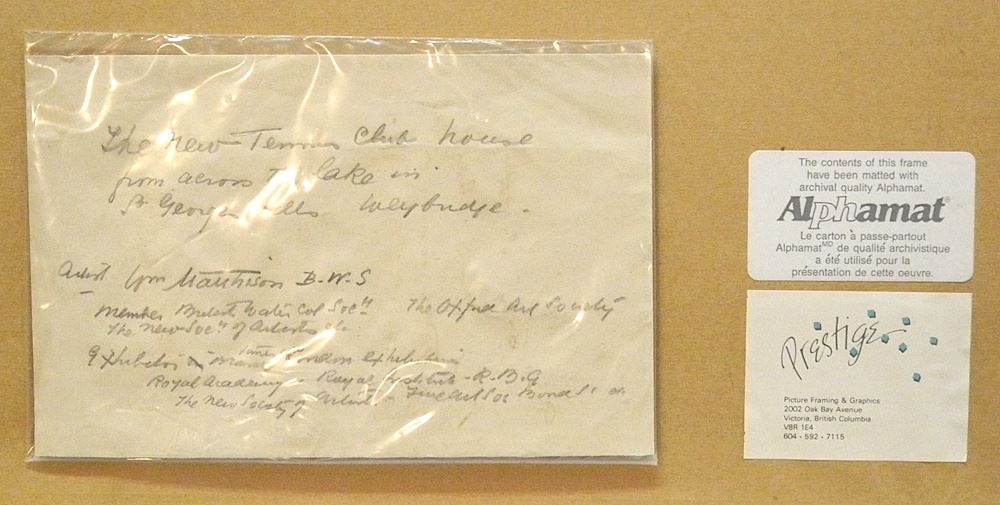 The New Tennis Club house
from across The lake in
St Georges Hills Weybridge.
Artist Wm Matthison B.W.S
Member British Water Col Socty The Oxford Art Society
The New Socty of Artists etc.
Exhibitor in many London exhibitions
Royal Academy - Royal Institute - R.B.A
The New Society of Artists - Fine Art Soc Bond St etc
The contents of this frame
have been matted with
archival quality Alphamat.
Alphamat®
Le carton à passe-partout
AlphamatMD de qualité archivistique
a été utilisé pour la
présentation de cette oeuvre.
Prestige
Picture Framing & Graphics
2002 Oak Bay Avenue
Victoria, British Columbia
V8R 1E4
604 • 592 • 7115